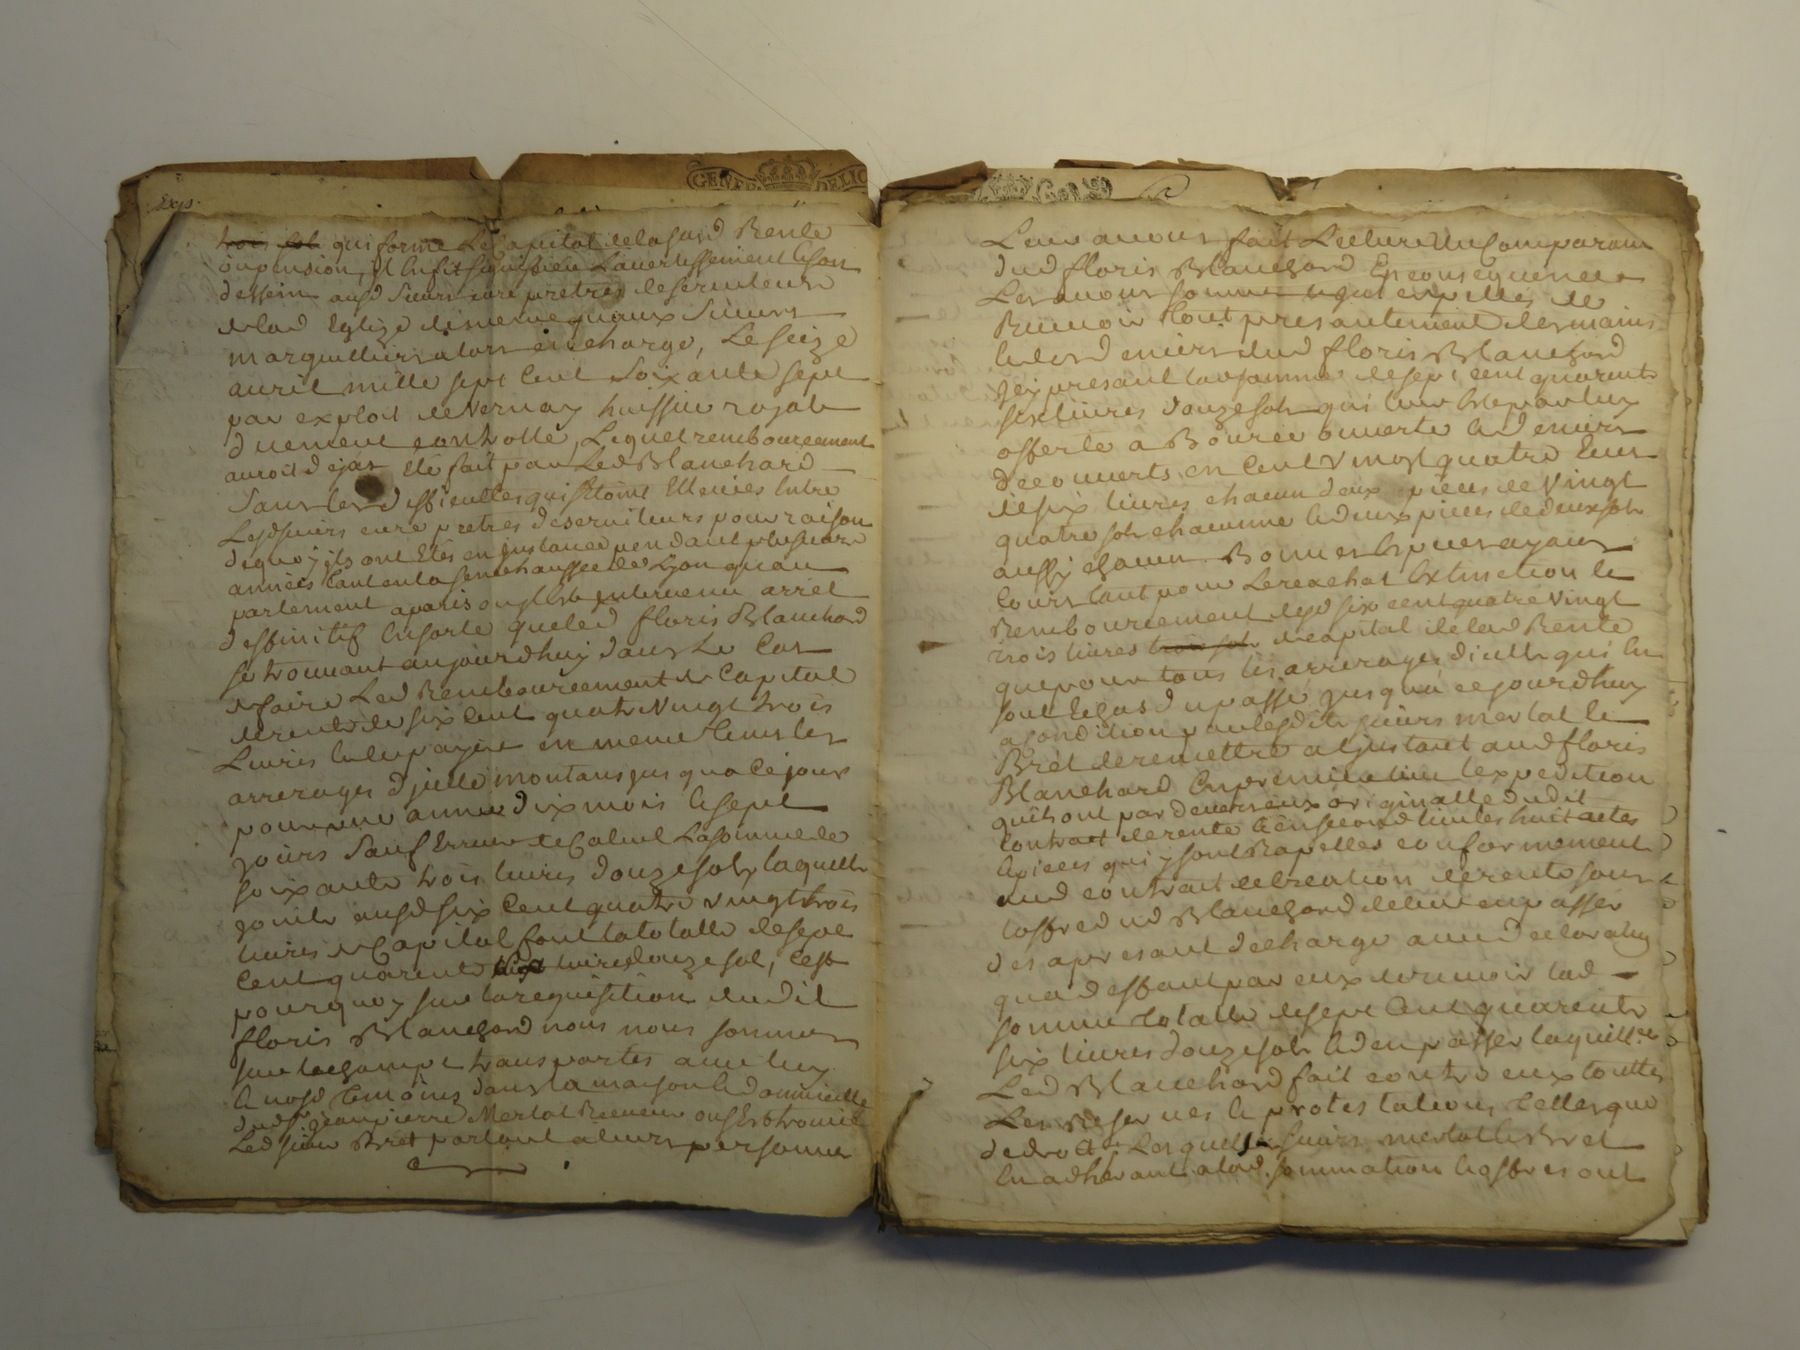 GENER DE LIO
trois sols qui forme le Capital de lasusd Rente
ou pension, il luy fit signiffier Lavertissement et son
dessein ausd sieurs curé pretres deserviteurs
delad Eglize de meme qu'aux Sieurs
marguilliers alors en charge, Le seize
avril mille sept Cent Soixante sept
par exploit de vernay huissier royale
duement controllé, Lequel remboursement
auroit dejas Eté fait par Led Blanchard
Sans les difficultes qui setoint Elevées Entre
Lesdsieurs curé pretres deserviteurs pour raison
dequoy ils ont Etés en jnstance pendant plusieurs
années tant en la senechaussée de Lyon qu'au
parlement aparis ou il est jntervenu arret
deffinitif Ensorte que led floris Blanchard
se trouvant aujourdhuy dans Le Cas
de faire Led Remboursement de Capital
de rente de six Cent quatre vingt trois
Livres et de payer en meme tems les
arrerages d'jcelle montans jusqua Ce jour
pour une année dix mois et sept
jours Sauf Erreur de Calcul La somme de
soixante trois livres douze sols, laquelle
jointe ausd six Cent quatre vingt trois
livres de Capital font la totalle de sept
Cent quarente six livres douze sol, C'est
pourquoy sur la requisition dudit
floris Blanchard nous nous sommes
sur lechampt transportés avec luy
et nosd temoins dans la maison et domicille
dud Sr jean pierre Merlat Receveur ou s'est trouvé
Led sieur Bret parlant a leurs personnes
Leur avons fait Lecture du Comparant
dud floris Blanchard En consequence
Les avons sommés et jnterpellés de
Recevoir tout presantement des mains
et des deniers dud floris Blanchard
jcy presant lad somme de sept cent quarente
six livres douze sols qui leur est par luy
offerte a Bource ouverte et deniers
decouverts en Cent vingt quatre Ecus
de six livres chacun deux pieces de vingt
quatre sols chacunne et deux pieces de deux sols
aussy chacun Bonnes Especes ayant
Cours tant pour Lerachat Extinction et
Remboursement desd six cent quatre vingt
trois livres trois sols de capital delad Rente
que pour tous les arrerages d'icelle qui En
sont Echus du passé jusqu'a cejourdhuy
acondition par lesdits sieurs merlat et
Bret de remettre a ljnstant aud floris
Blanchard En premier lieu lexpedition
quils ont par devers eux originalle dudit
Contract de rente et en second lieu les huit actes
et pieces qui y sont Rapellés conformement
aud contract de creation de rente sous
loffre dud Blanchard de leur en passer
des apresant decharge avec declaration
qua deffaut par eux de recevoir lad
somme totalle de sept Cent quarente
six livres douze sols et den passer laquittce
Led Blanchard fait contre eux touttes
Les Reserves et protestations telles que
de droit Lesquels sieurs merlat et Bret
En adherant alad sommation et offres ont